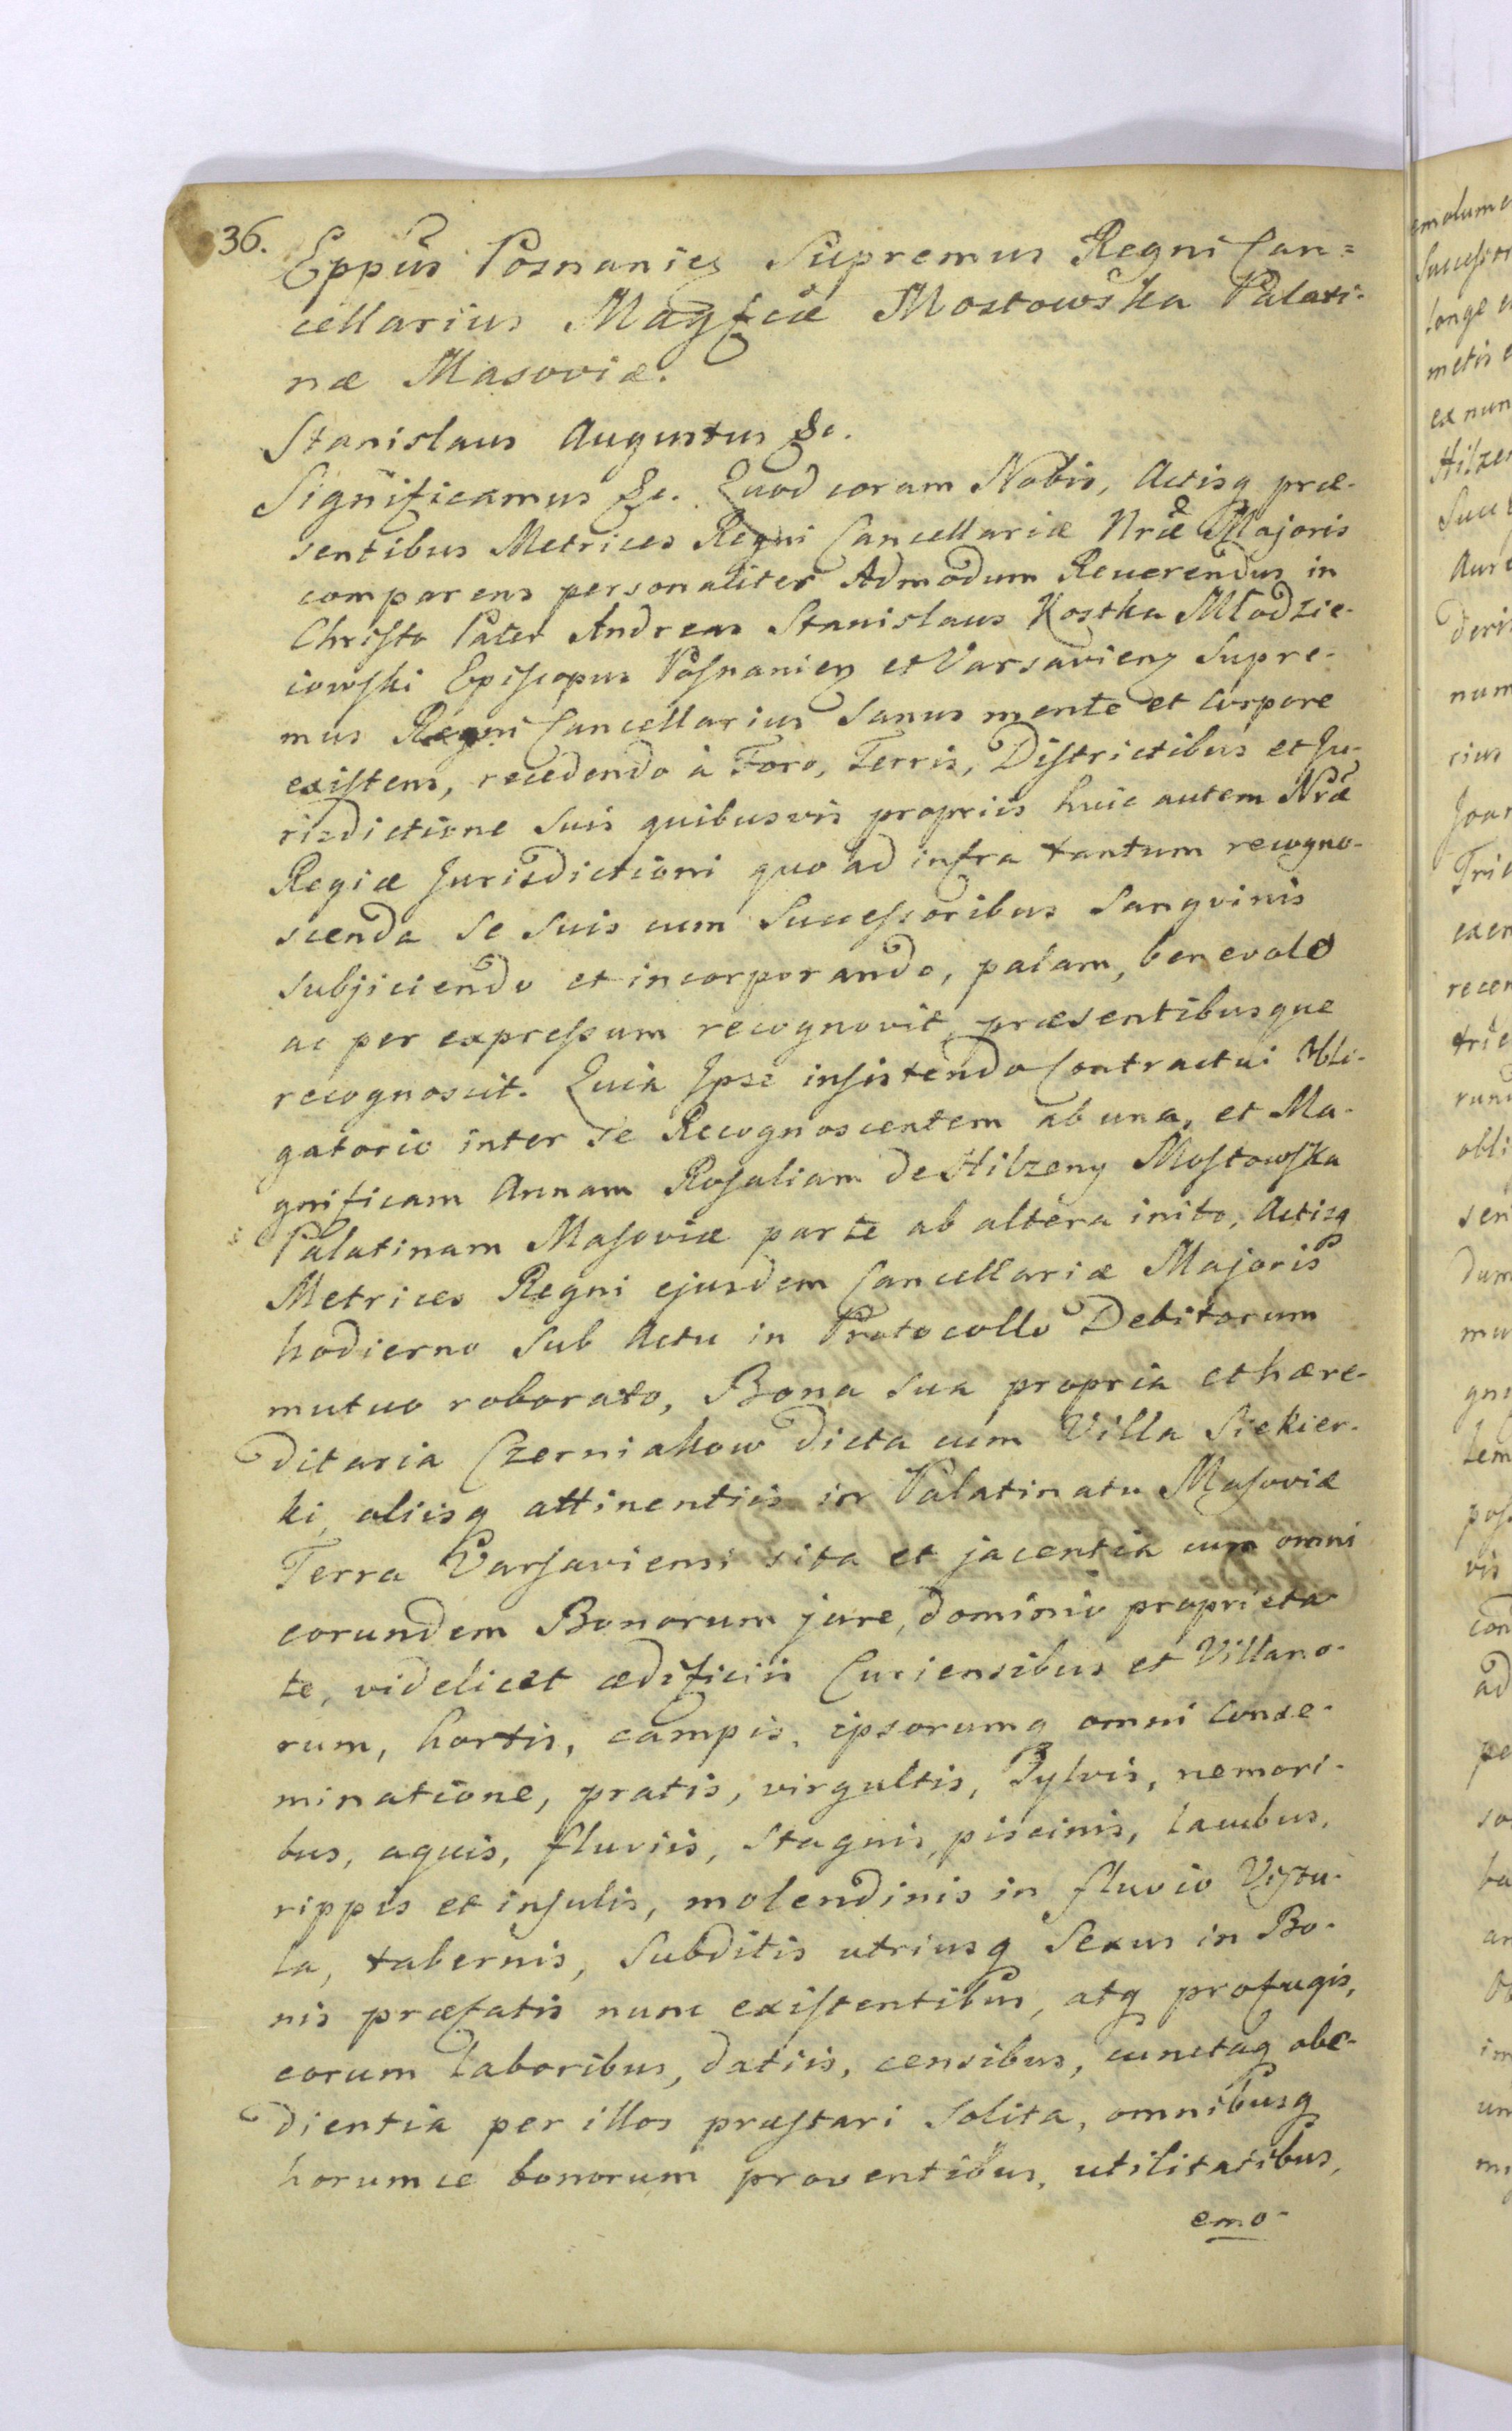 36.
Eppûs Posnanieɳ Supremus Regni Can=
cellarius Magfcæ Mostowska Palati-
næ Masoviæ.
Stanislaus Augustus &c.
Significamus &c. Quod coram Nobis, Actisq præ-
sentibus Metrices Regni Cancellariæ Nræ Majoris
comparens personaliter Admodum Reverendus in
Christo Pater Andreas Stanislaus Kostka Młodzie-
iowski Episcopus Posnanieɳ et Varsavieɳ Supre-
mus Regni Cancellarius Sanus mente et Corpore
existens, recedendo à Foro, Terris, Districtibus et Ju-
risdictione Suis quibusvis propriis huic autem Nræ
Regiæ Jurisdictioni quo ad infra tantum recogno-
scenda Se Suis cum Successoribus Sangvinis
subjiciendo et incorporando, palam, benevole
ac per expressum recognovit, præsentibusque
recognoscit. Quia Ipse insistendo Contractui Obli-
gatorio inter Se Recognoscentem ab una, et Ma-
gnificam Annam Rosaliam de Hilzeny Mostowska
Palatinam Masoviæ parte ab altera inito, Actisq
Metrices Regni ejusdem Cancellariæ Majoris
hodierno Sub Actu in Protocollo Debitorum
mutuo roborato, Bona Sua propria et hære-
ditaria Czerniakow dicta cum Villa Siekier-
ki, aliisq attinentiis in Palatinatu Masoviæ
Terra Varsaviensi sita et jacentia cum omni
eorundem Bonorum jure, dominio proprieta
te, videlicet ædificiis Curiensibus et Villano-
rum, hortis, campis, ipsorumq omni Conse-
minatione, pratis, virgultis, Sylvis, nemori-
bus, aquis, fluviis, Stagnis, piscinis, lacubus,
rippis et insulis, molendinis in fluvio Vistu-
la, tabernis, Subditis utriusq Sexus in Bo-
nis præfatis nunc existentibus, atq profugis,
eorum laboribus, datiis, censibus, cunctaq obe-
dientia per illos præstari Solita, omnibusq
horumce bonorum proventibus, utilitatibus,
emo-